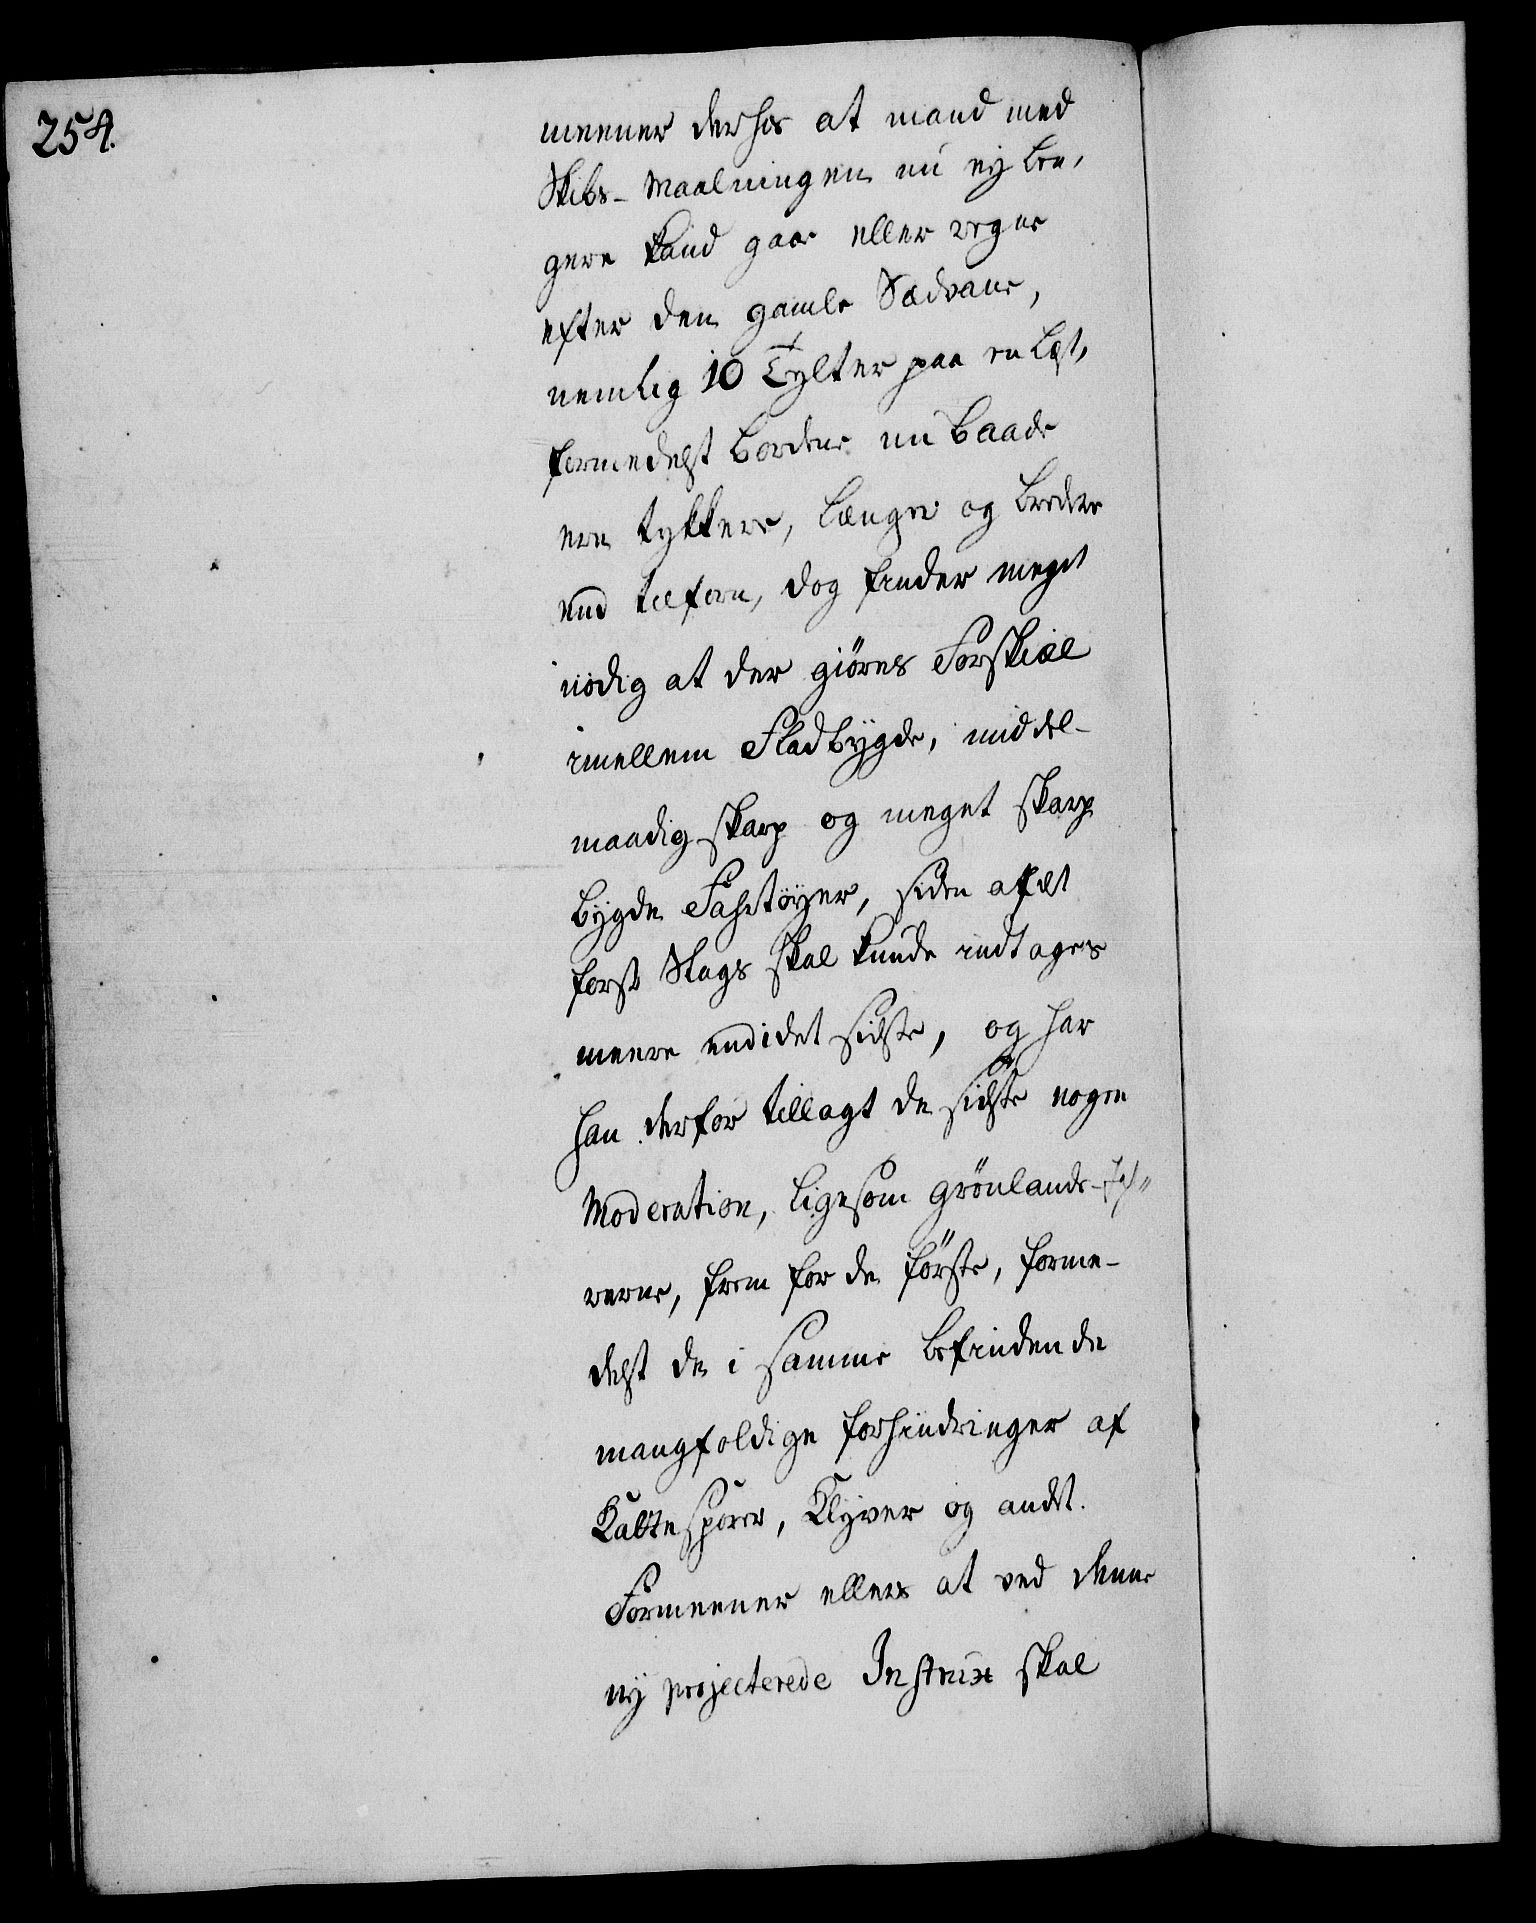 254.
meener derhos at mand med
Skibs-Maalningen nu ej læn,
gere kand gaae eller regne
efter den gamle Sædvane,
nemlig 10 Tylter paa en Læst,
formedelst Bordene nu baade
ere tykkere, længer og bredere
end tilforn, dog finder meget
nödig at der giöres Forskiæl
imellem Fladbygde, middel-
maadig skarp og meget skarp
bygde Fahrtöyer, siden af det
först Slags skal kunde indtages
meere end i det sidste, og har
han derfor tillagt de sidste nogen
Moderation, ligesom Grönlands-Fah,,
rerne, frem for de förste, forme-
delst de i samme befindende
mangfoldige forhindringer af
Kattesporer, Klyver og andet.
Formeener ellers at ved denne
ny projecterede Instrux skal